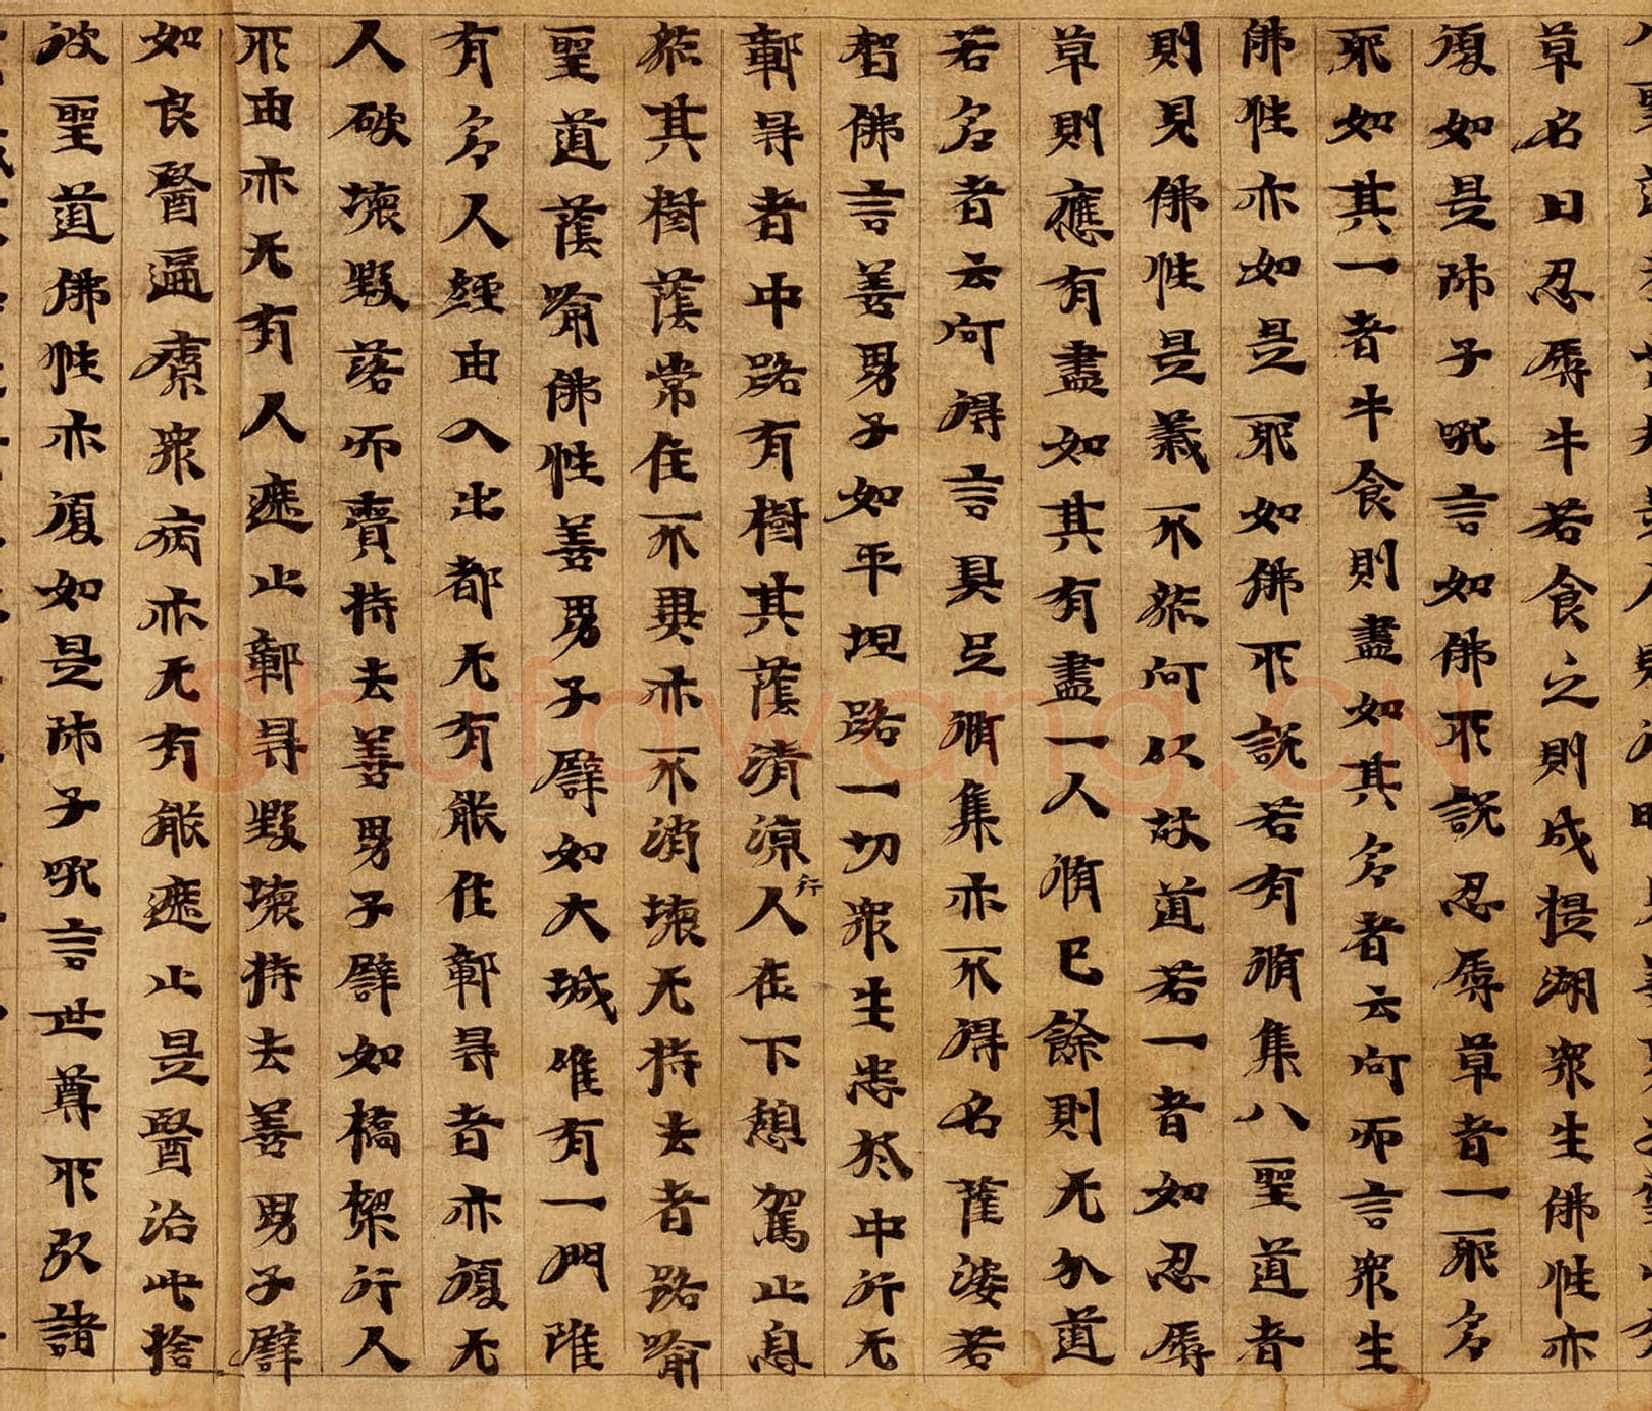 草名曰忍辱牛若食之則成提湖衆生佛性亦
復如是師子吼言如佛所說忍辱草者一耶多
耶如其一者牛食則盡如其多者云何而言衆生
佛性亦如是耶如佛所說若有脩集八聖道者
則見佛性是義不然何以故道若一者如忍辱
草則應有盡如其有盡一人脩已餘則无分道
若多者云何得言具足脩集亦不得名薩婆若
智佛言善男子如平坦路一切衆生悉於中行无
鄣㝵者中路有樹其蔭清涼行人在下憩駕止息
然其樹蔭常住不異亦不消壞无持去者路喻
聖道蔭喻佛性善男子譬如大城唯有一門雖
有多人經由入出都无有能住鄣㝵者亦復无
人破壞毀落而賷持去善男子譬如橋樑行人
所由亦无有人遮止鄣㝵毀壞持去善男子譬
如良醫遍療衆病亦无有能遮止是醫治此捨
彼聖道佛性亦復如是師子吼言世尊所引諸
shufawang.cn